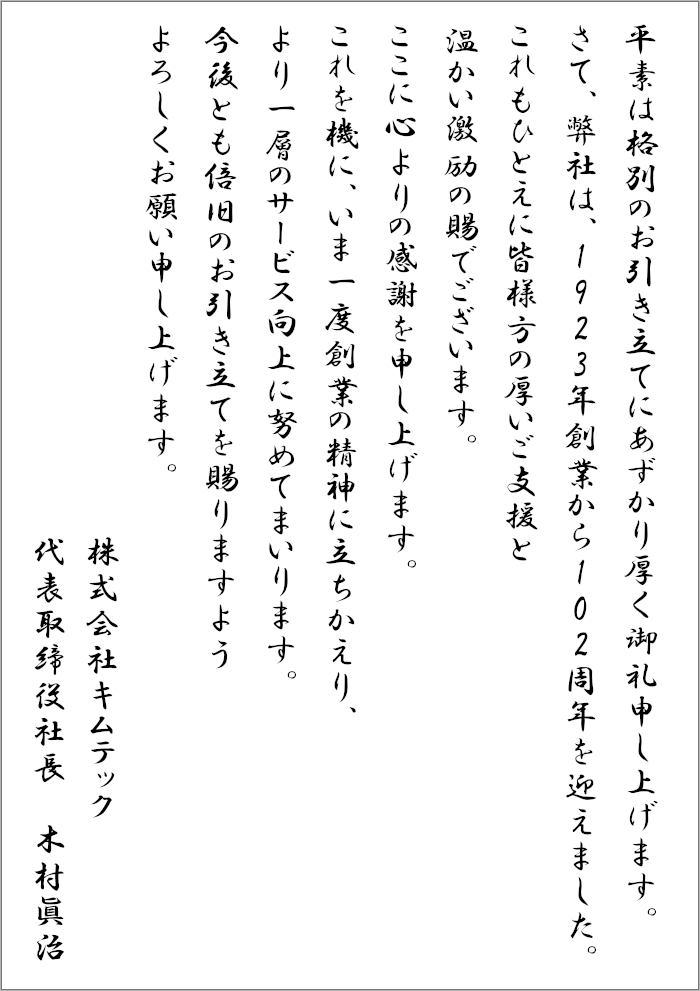 平素は格別のお引き立てにあずかり厚く御礼申し上げます。
さて、弊社は、1923年創業から102周年を迎えました。
これもひとえに皆様方の厚いご支援と
温かい激励の賜でございます。
ここに心よりの感謝を申し上げます。
これを機に、いま一度創業の精神に立ちかえり、
より一層のサービス向上に努めてまいります。
今後とも倍旧のお引き立てを賜りますよう
よろしくお願い申し上げます。
株式会社キムテック
代表取締役社長　木村眞治